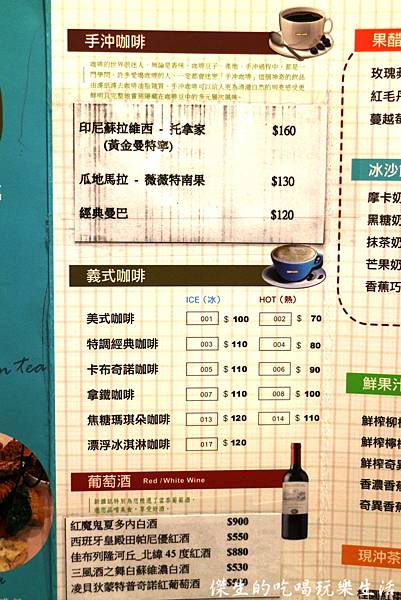 手沖咖啡
印尼蘇拉維西 - 托拿家 $160
(黃金曼特寧)
瓜地馬拉 - 薇薇特南果 $130
經典曼巴 $120
義式咖啡
ICE（冰） HOT（熱）
美式咖啡 001 $ 100 002 $ 70
特調經典咖啡 003 $ 110 004 $ 80
卡布奇諾咖啡 005 $ 110 006 $ 90
拿鐵咖啡 007 $ 110 008 $ 100
焦糖瑪琪朵咖啡 013 $ 120 014 $ 110
漂浮冰淇淋咖啡 017 $ 120
葡萄酒 Red / White Wine
紅魔鬼夏多內白酒 $900
西班牙皇殿田帕尼優紅酒 $550
佳布列隆河丘_北緯45度紅酒 $880
三風酒之舞白蘇維濃白酒 $530
凌貝狄蒙特普奇諾紅葡萄酒
果醋
玫瑰
紅毛丹
蔓越
冰沙
摩卡奶
黑糖奶
抹茶奶
芒果奶
香蕉巧
鮮果汁
鮮榨柳
鮮榨檸
鮮榨奇異
香濃香
奇異香
現沖茶
傑生的吃喝玩樂生活